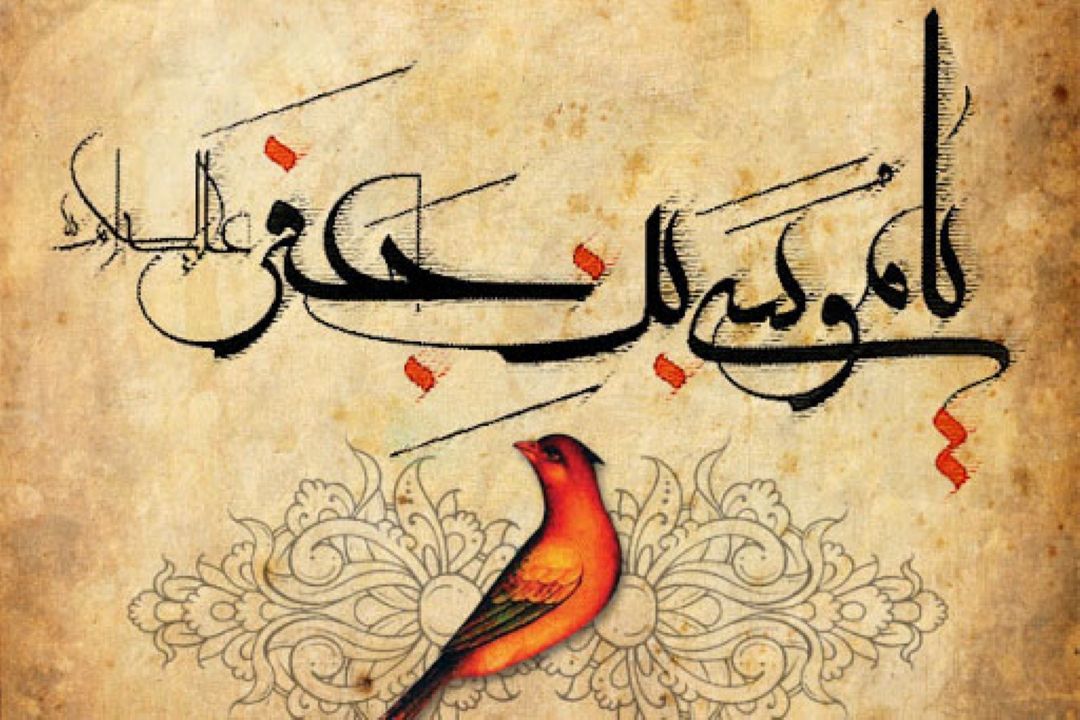 یا مُوسَی بنِ جَعفَرٍ علیه السلام